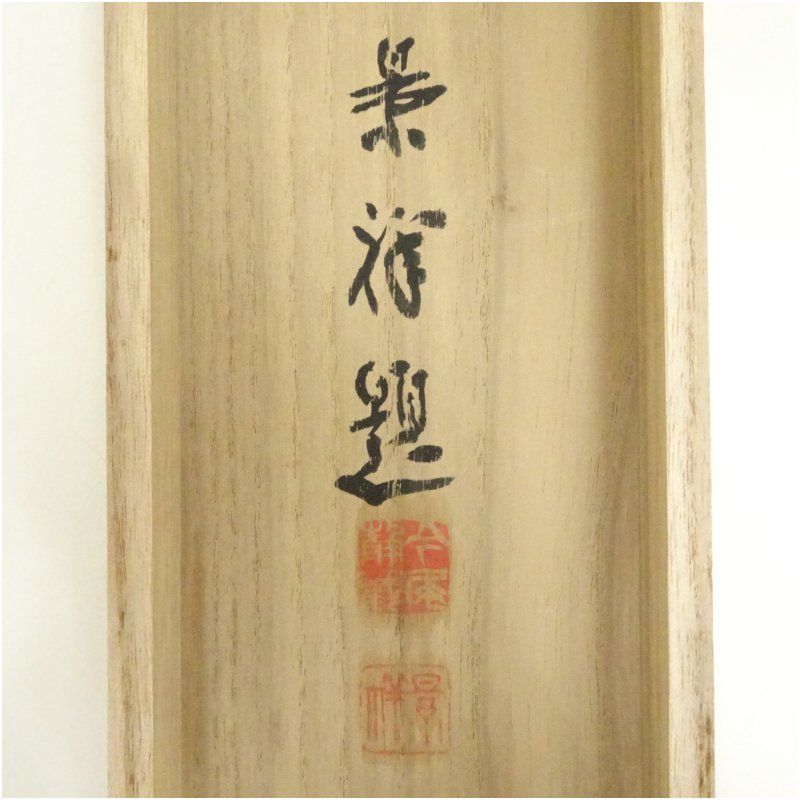 景祥題
景祥